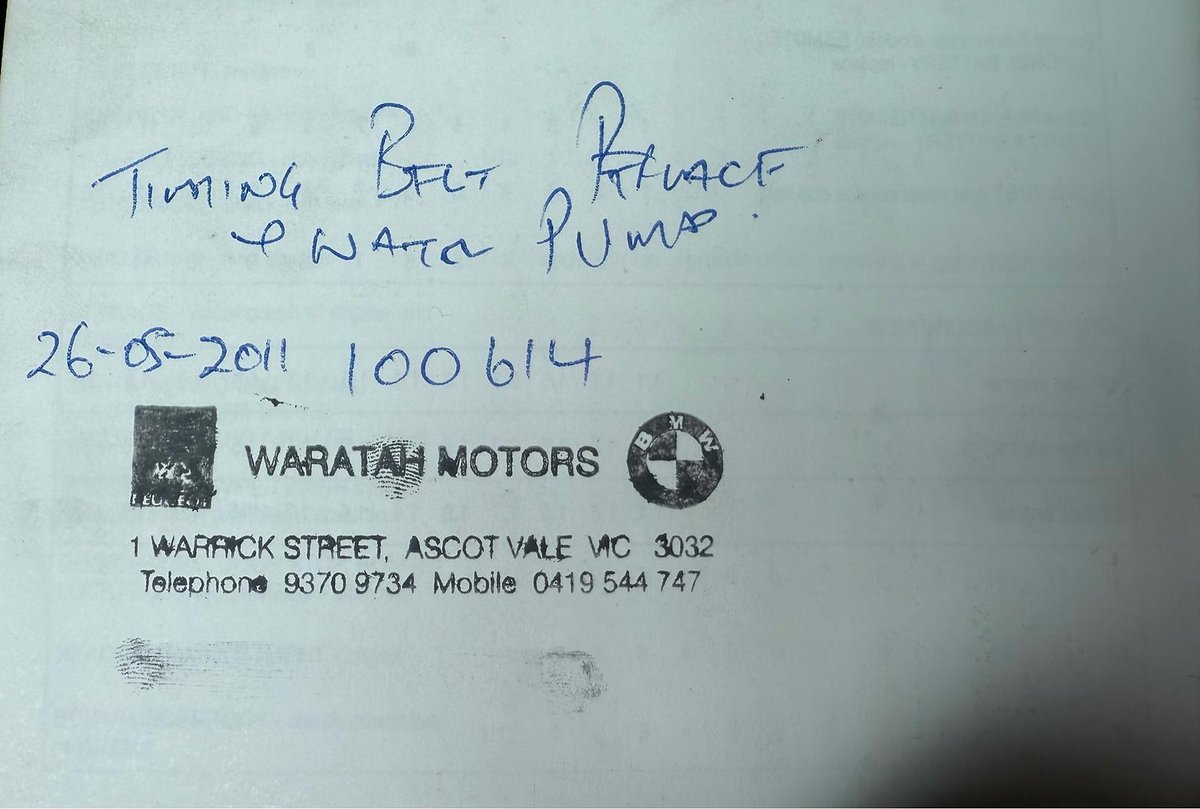 TIMING BELT REPLACE
& WATER PUMP.
26-05-2011 100614
PEUGEOT WARATAH MOTORS BMW
1 WARRICK STREET, ASCOT VALE VIC 3032
Telephone 9370 9734 Mobile 0419 544 747